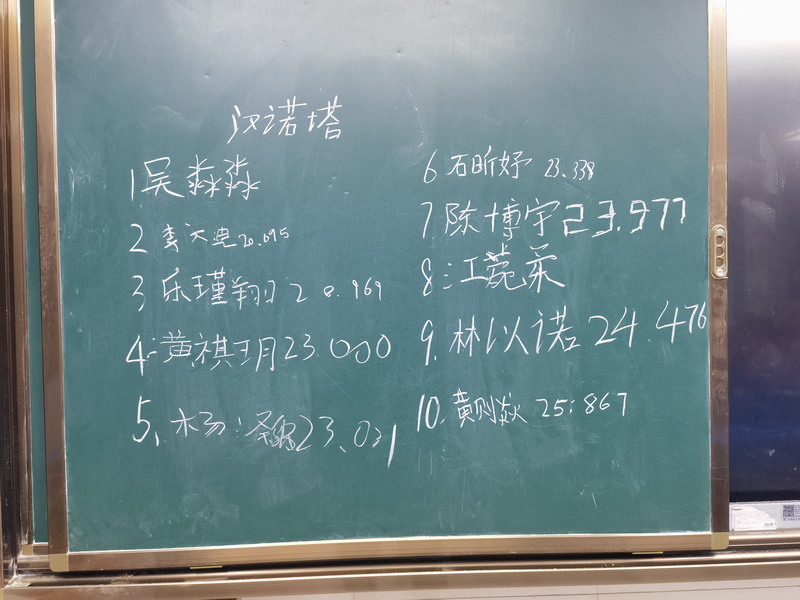 汉诺塔
1 吴淼淼
2 李天 20.695
3 乐瑾翔 20.969
4. 黄祺玥 23.000
5. 杨泽 23.021
6 石昕妤 23.338
7 陈博宇 23.977
8 江菀柔
9. 林以诺 24.476
10. 黄则焱 25:867